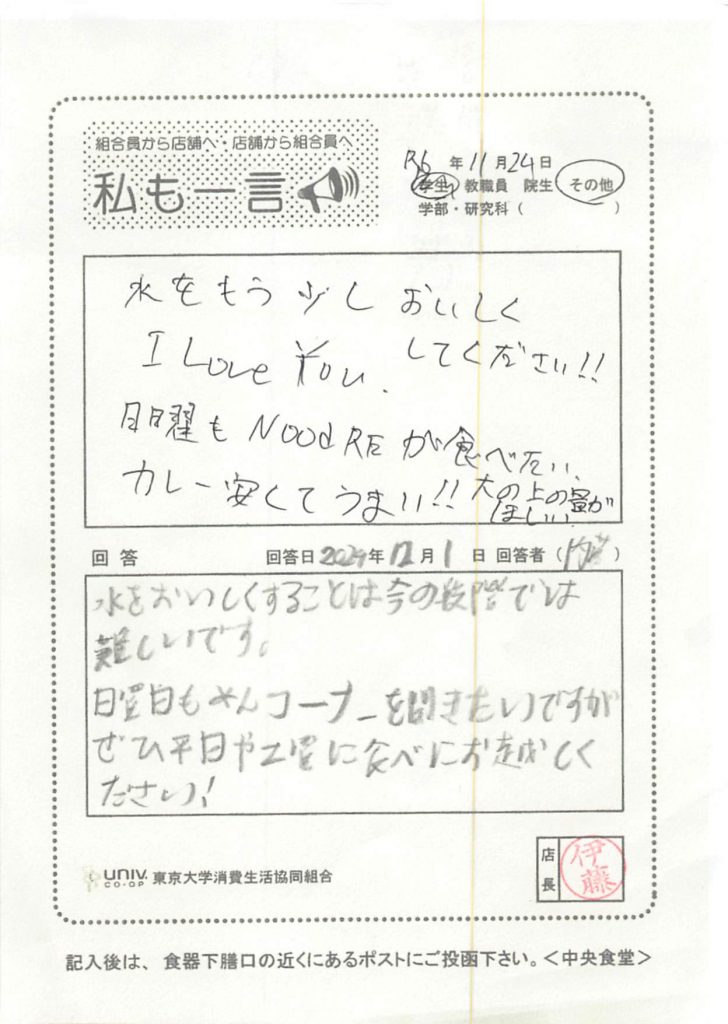 組合員から店舗へ・店舗から組合員へ
私も一言
R6年11月24日
学生 教職員 院生 その他
学部・研究科（ ）
水をもう少しおいしく
してください!!
I Love You.
日曜も NOOdREが食べたい、
カレー安くてうまい!! 大の上の量が
ほしい
回答 回答日2024年12月1日 回答者（ ）
水をおいしくすることは今の段階では
難しいです。
日曜日もめんコーナーを開きたいですが
ぜひ平日や土曜に食べにお越しく
ださい!
UNIV. CO-OP 東京大学消費生活協同組合
店長 伊藤
記入後は、食器下膳口の近くにあるポストにご投函下さい。＜中央食堂＞